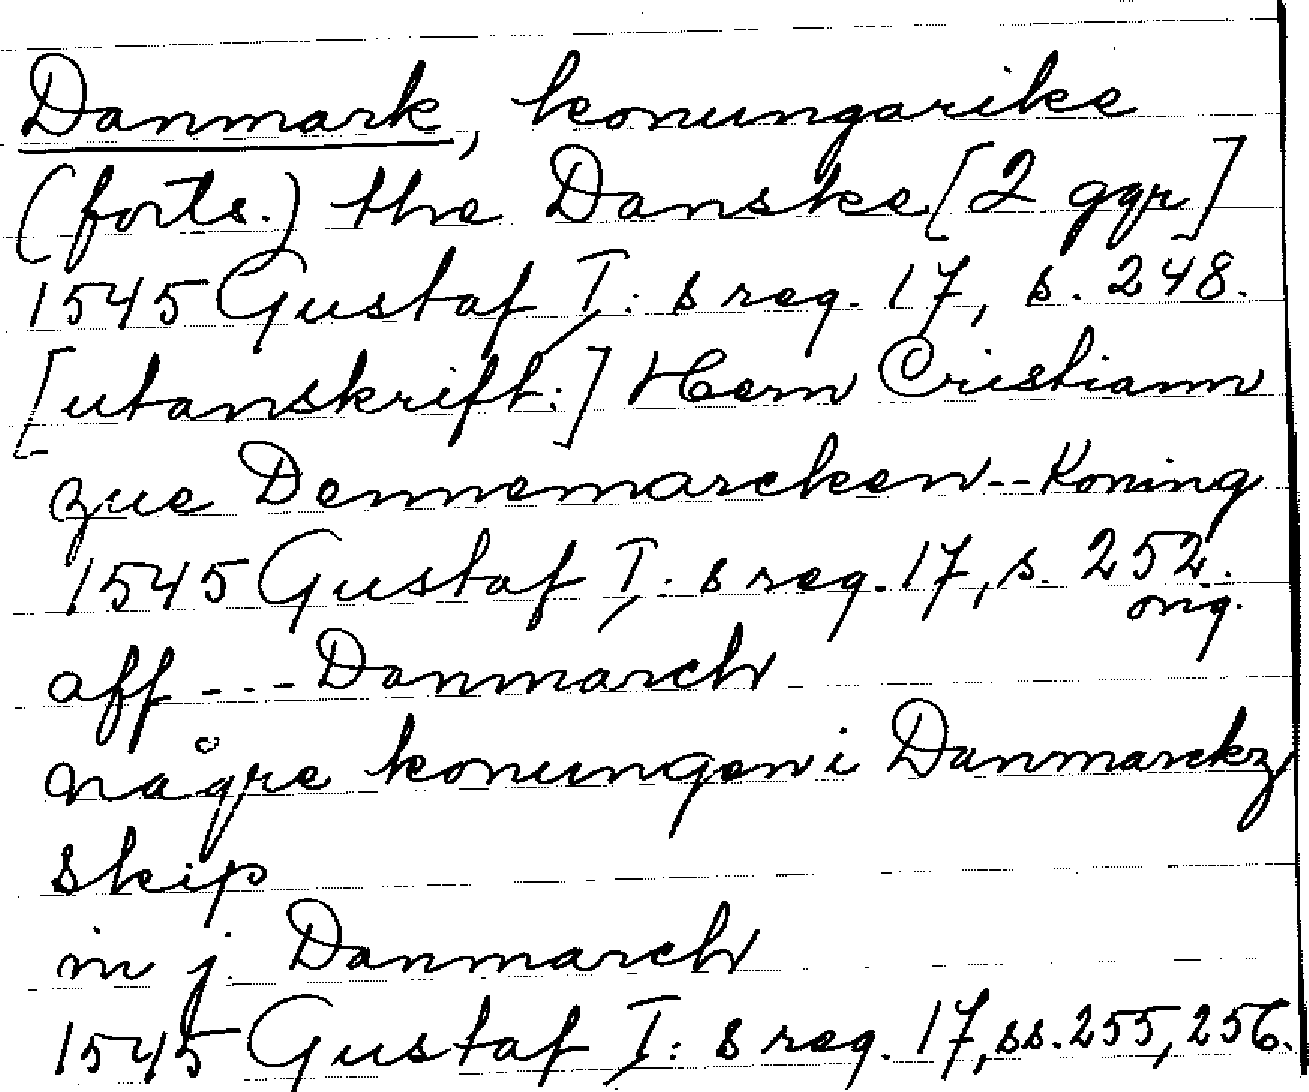 Danmark, konungarike
(forts.) the Danske [2 ggr]
1545 Gustaf I: s reg. 17, s. 248.
[utanskrift:] Hern Cristiann
zue Dennemarcken -- Koning
1545 Gustaf I: s reg. 17, s. 252.
orig.
aff --- Danmarch
någre konungen i Danmarckz
skip
in j Danmarch
1545 Gustaf I: s reg. 17, ss. 255, 256.